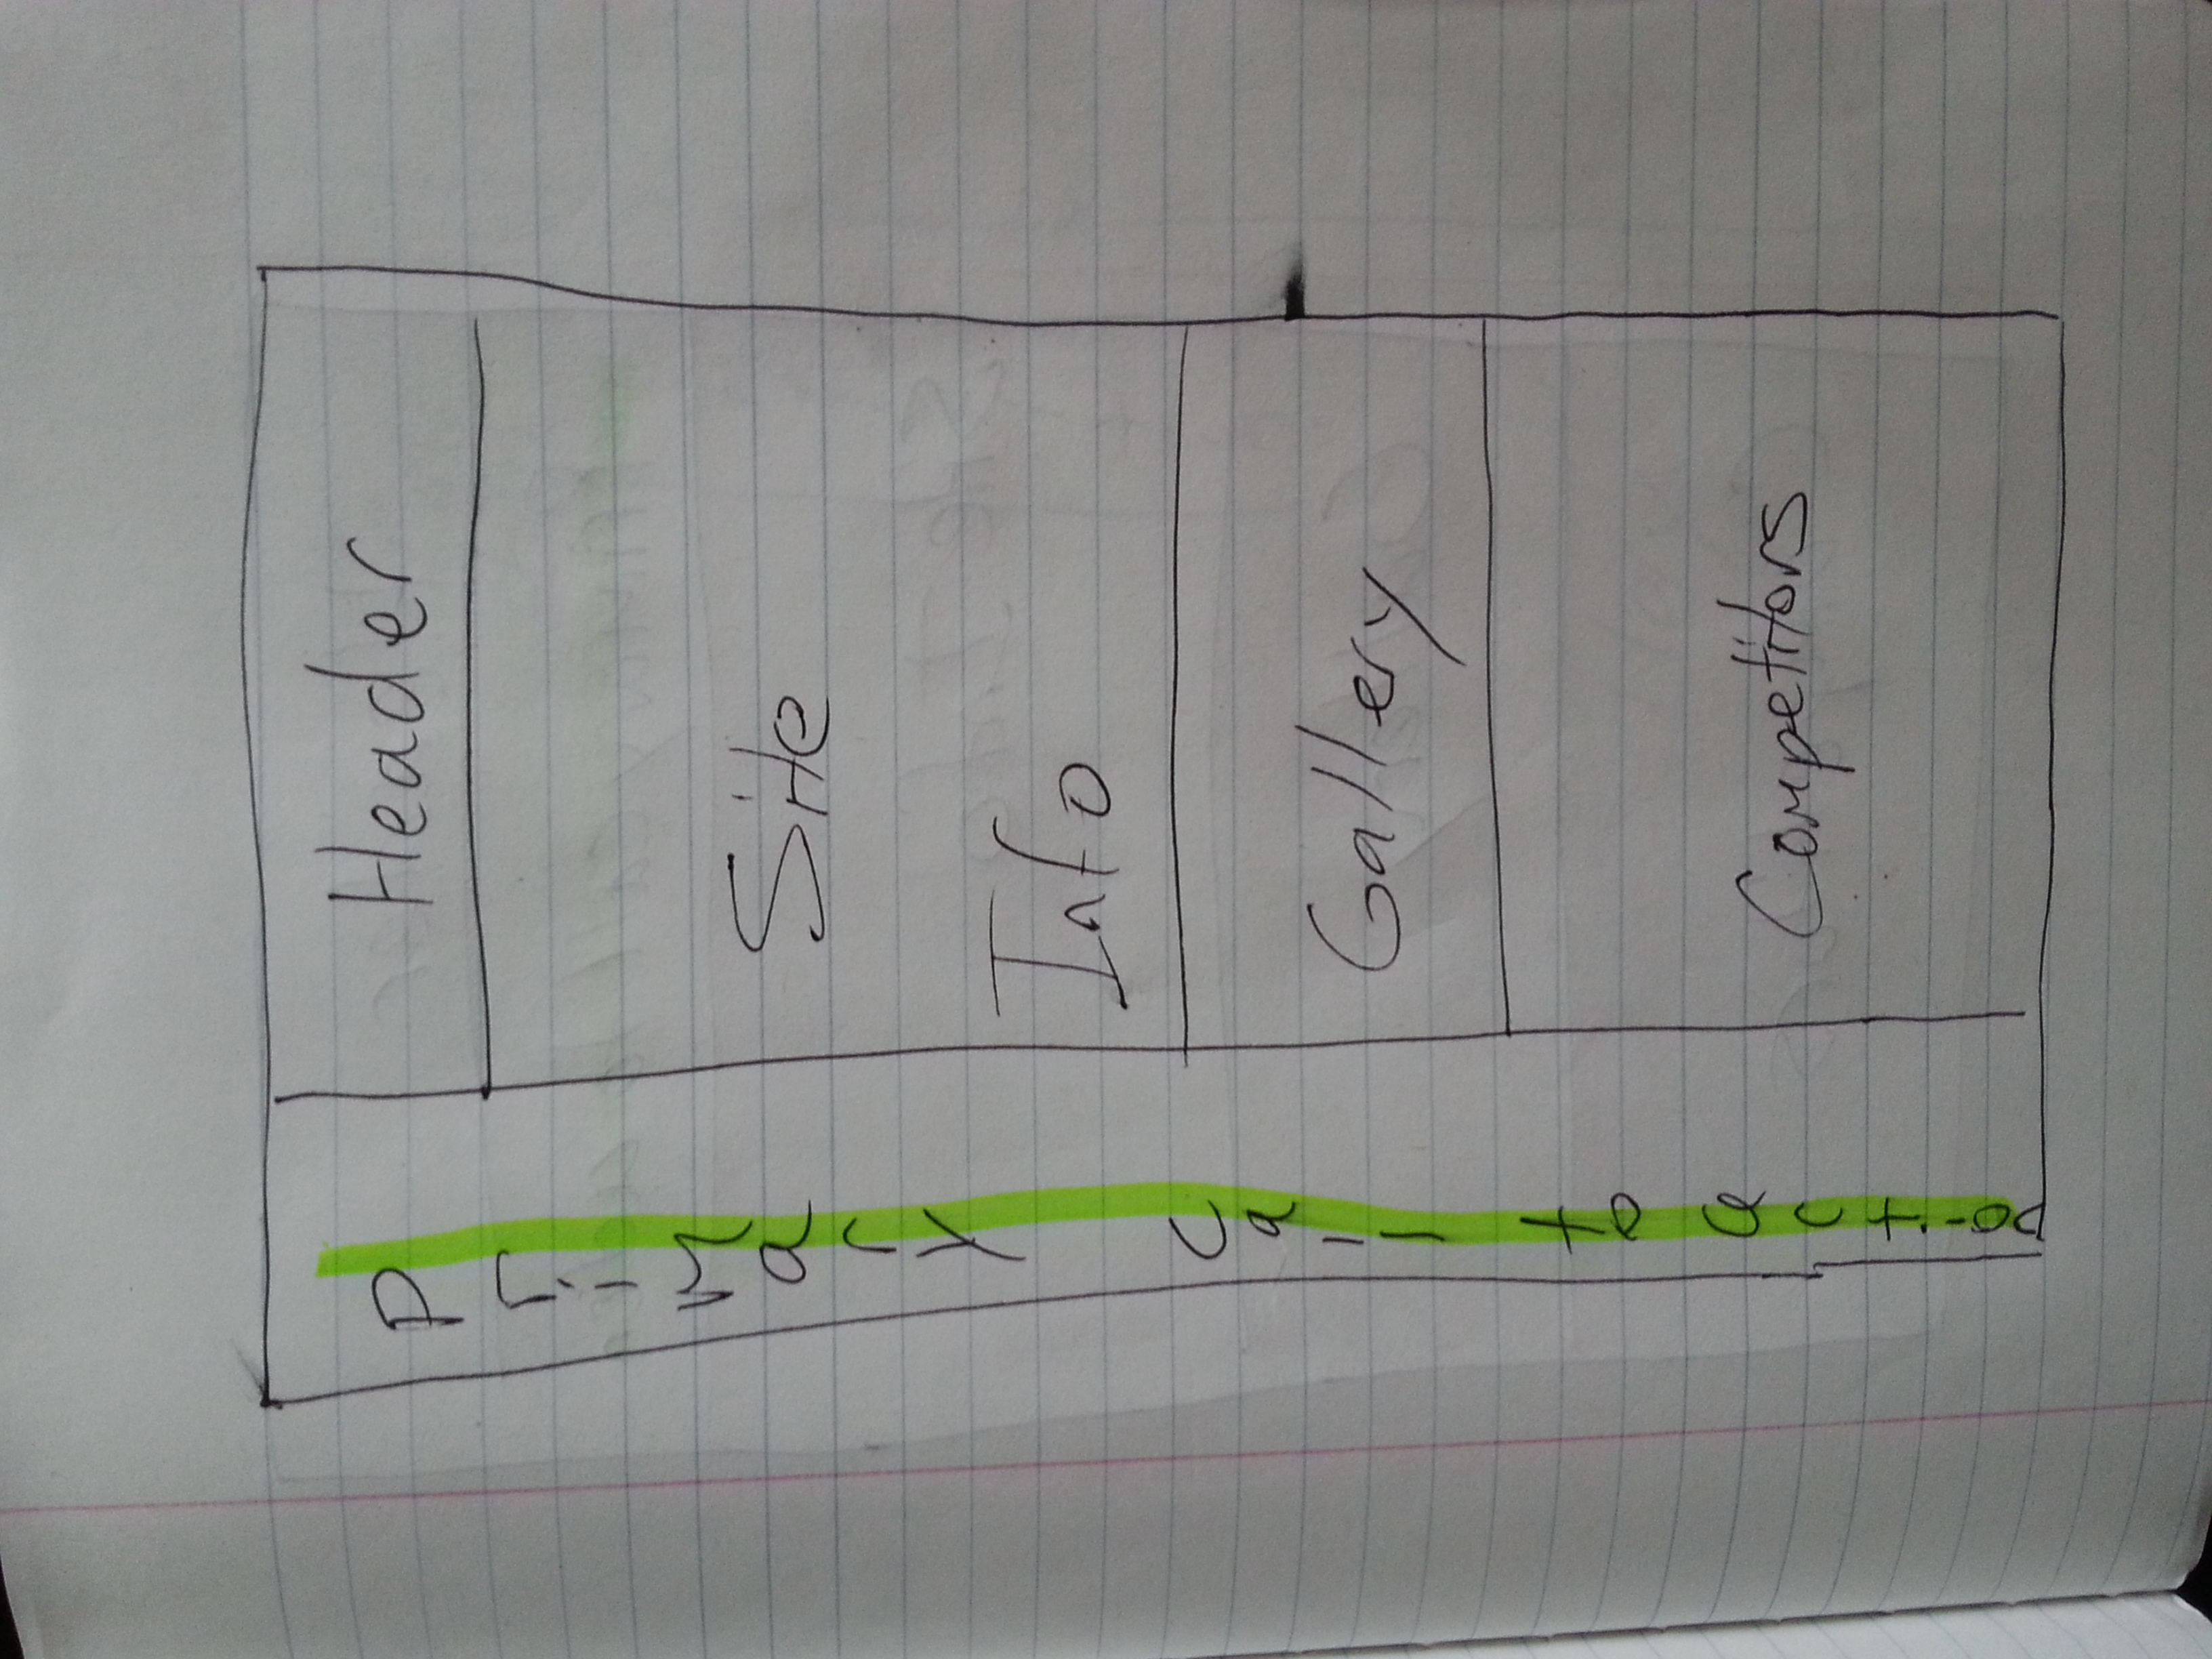 Primary Call to action
Header
Site
Info
Gallery
Competitors